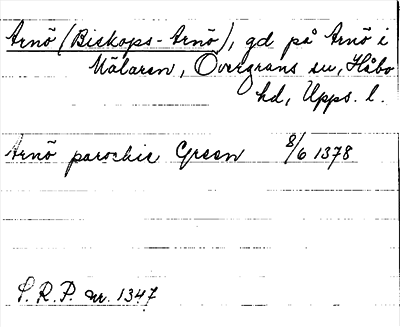 Arnö (Biskops-Arnö), gd på Arnö i
Mälaren, Övergrans sn, Håbo
hd, Upps. l.
Arnö parochie Green 8/6 1378
S.R.P. nr. 1347